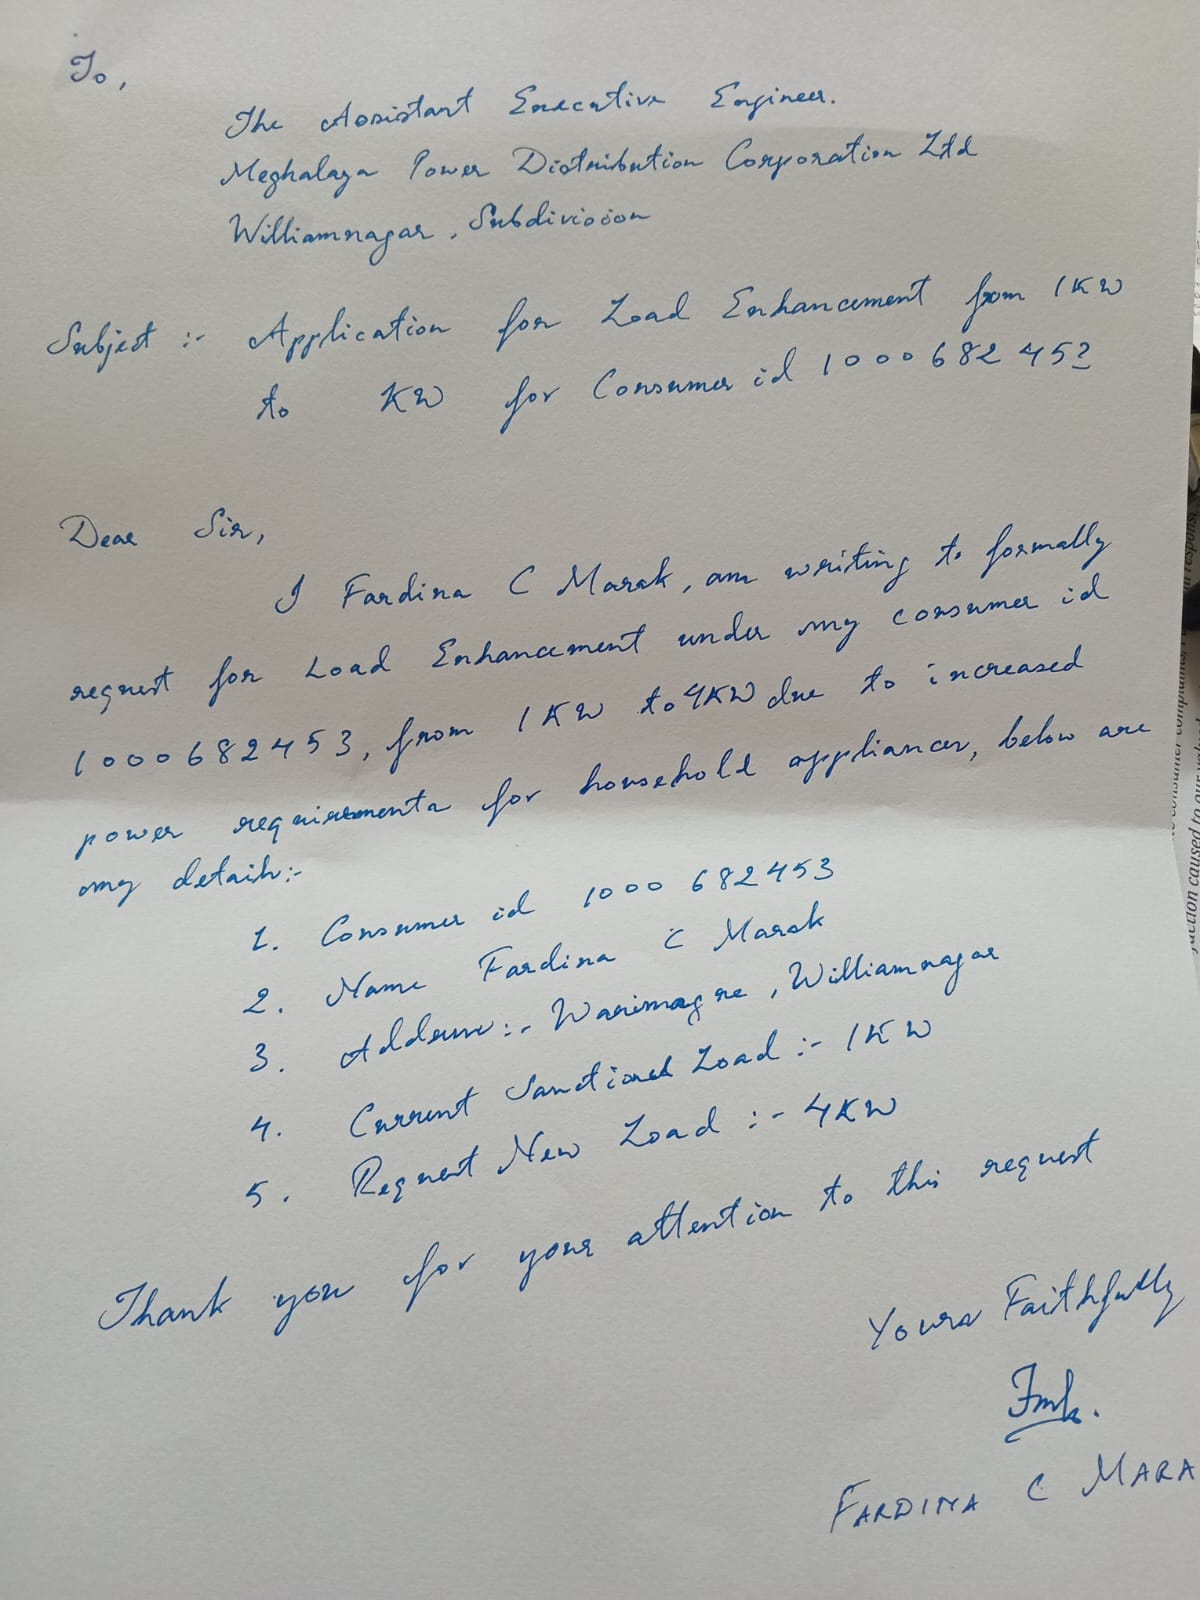 To,
The Assistant Executive Engineer.
Meghalaya Power Distribution Corporation Ltd
Williamnagar, Subdivision
Subject :- Application for Load Enhancement from 1KW
to KW for Consumer id 1000682453
Dear Sir,
I Fardina C Marak, am writing to formally
request for Load Enhancement under my consumer id
1000682453, from 1KW to 4KW due to increased
power requirements for household appliances, below are
my details:-
1. Consumer id 1000 682453
2. Name Fardina C Marak
3. Address:- Warimagre, Williamnagar
4. Current Sanctioned Load :- 1KW
5. Request New Load :- 4KW
Thank you for your attention to this request
Yours Faithfully
Fmk.
FARDINA C MARA